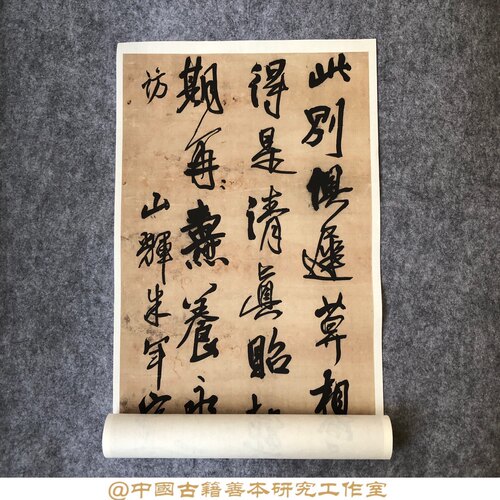 此別俱遲莫相
得是清真貽
期再養永
訪
山輝朱
@中國古籍善本研究工作室